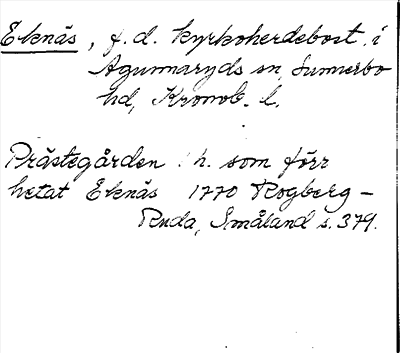 Eknäs, f.d. kyrkoherdebost. i
Agunnaryds sn, Sunnerbo
hd, Kronob. l.
Prästegården h. som förr
hetat Eknäs 1770 Rogberg-
Ruda, Småland s. 379.